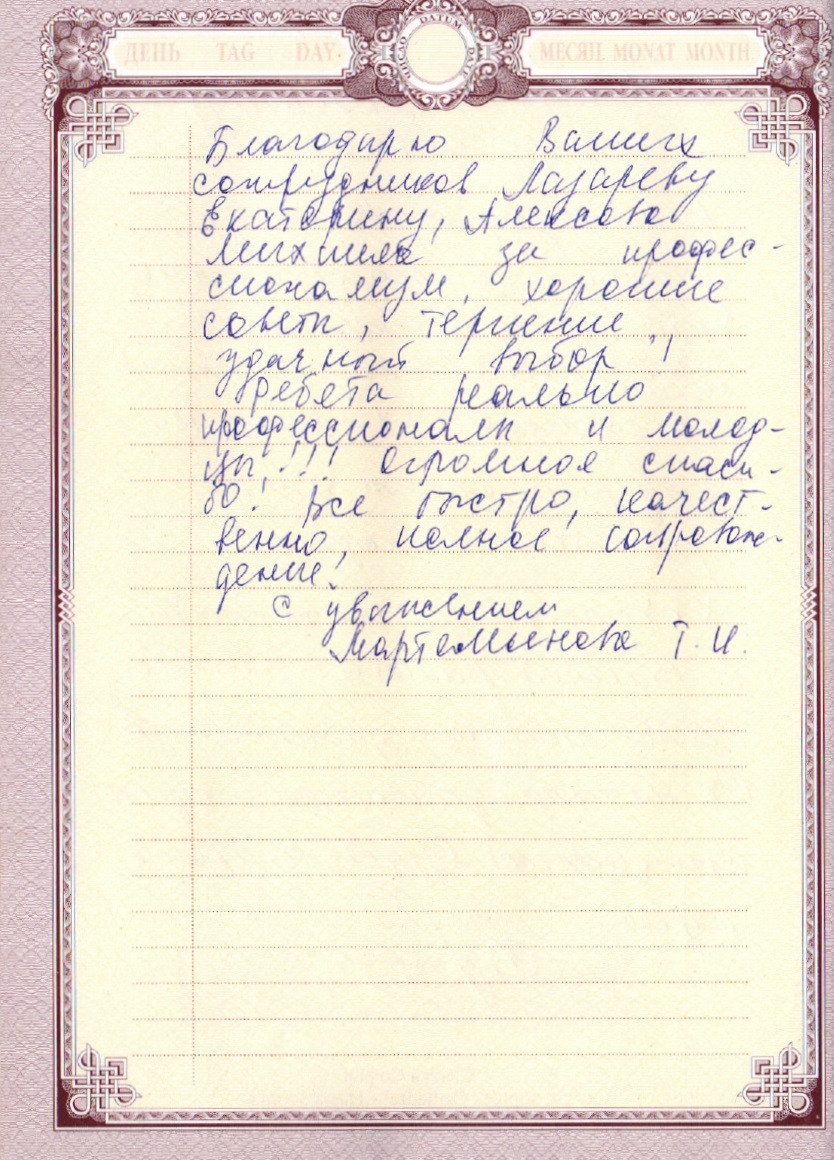 ДЕНЬ TAG DAY
DATUM
МЕСЯЦ MONAT MONTH
Благодарю Ваших
сотрудников Лазареву
Екатерину, Алексова
Михаила за профес-
сионализм, хорошие
советы, терпение,
удачный выбор!
Ребята реально
профессионалы и молод-
цы!!! Огромное спаси-
бо! Все быстро, качест-
венно, полное сопровож-
дение!
С уважением
Мартемьянова Т.И.